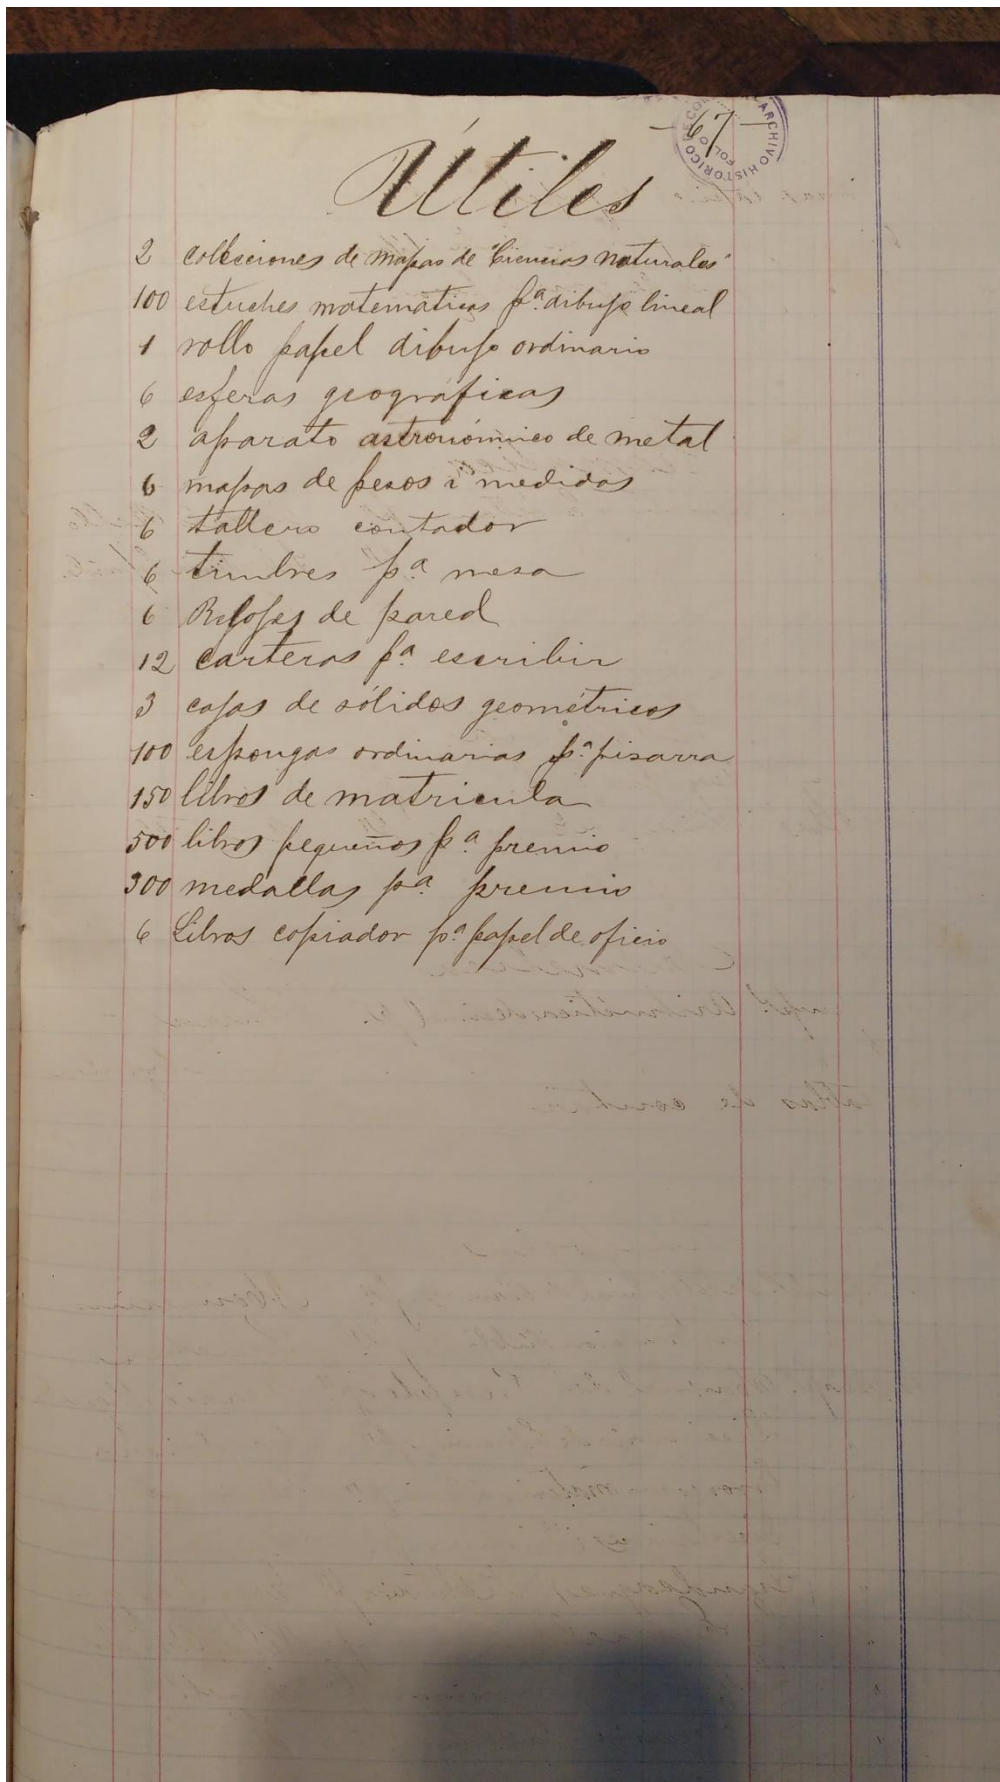 -67-
ARCHIVO HISTORICO
FOLIO
Útiles
2 collecciones de mapas de "Ciencias naturales"
100 estuches matemáticas pª. dibujo lineal
1 rollo papel dibujo ordinario
6 esferas geográficas
2 aparato astronómico de metal
6 mapas de pesos i medidas
6 tallero contador
6 timbres pª mesa
6 Relojes de pared
12 carteras pª escribir
3 cajas de sólidos geométricos
100 esponjas ordinarias pª pisarra
150 libros de matricula
500 libros pequeños pª premio
300 medallas pª premio
6 Libros copiador pª papel de oficio